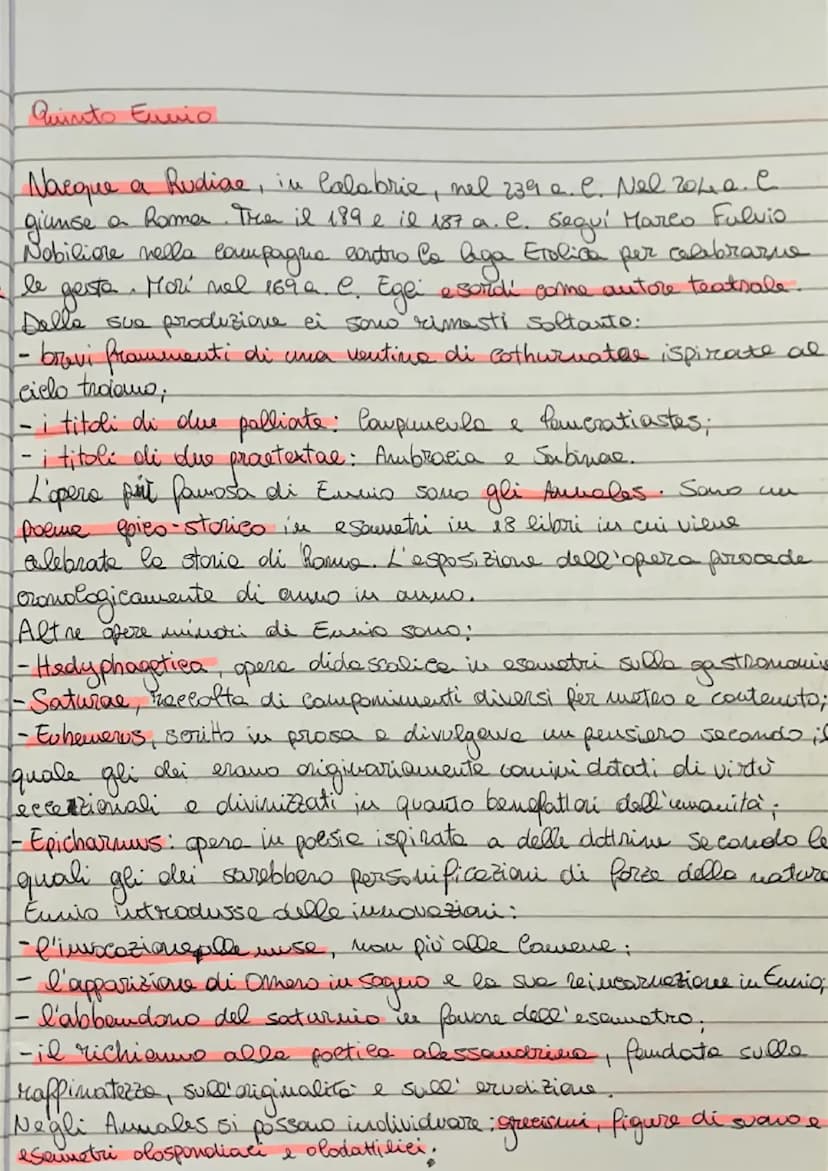 Quinto Ennio
Nacque a Rudiae, in Calabria, nel 239 a.C. Nel 204 a.C
giunse a Roma. Tra il 189 e il 187 a.C. seguí Marco Fulvio
Nobiliore nella campagna contro la lega Etolica per celebrarne
le gesta. Morí nel 169 a.C. Egli esordí come autore teatrale.
Della sua produzione ci sono rimasti soltanto:
- brevi frammenti di una ventina di cothurnatae ispirate al
ciclo troiano;
- i titoli di due palliate: Caupuncula e Pancratiastes;
- i titoli di due praetextae: Ambracia e Sabinae.
L'opera piú famosa di Ennio sono gli Annales. Sono un
poema epico-storico in esametri in 18 libri in cui viene
celebrata la storia di Roma. L'esposizione dell'opera procede
cronologicamente di anno in anno.
Altre opere minori di Ennio sono:
- Hedyphagetica, opera didascalica in esametri sulla gastronomia
- Saturae, raccolta di componimenti diversi per metro e contenuto;
- Euhemerus, scritto in prosa e divulgava un pensiero secondo il
quale gli dei erano originariamente uomini dotati di virtù
eccezionali e divinizzati in quanto benefattori dell'umanità;
- Epicharmus: opera in poesia ispirata a delle dottrine secondo le
quali gli dei sarebbero personificazioni di forze della natura
Ennio introdusse delle innovazioni:
- l'invocazione alle muse, non più alle Camene;
- l'apparizione di Omero in sogno e la sua reincarnazione in Ennio;
- l'abbandono del saturnio in favore dell'esametro;
- il richiamo alla poetica alessandrina, fondata sulla
raffinatezza, sull'originalità e sull'erudizione.
Negli Annales si possono individuare: grecismi, figure di suono e
esametri olospondiaci e olodattilici.